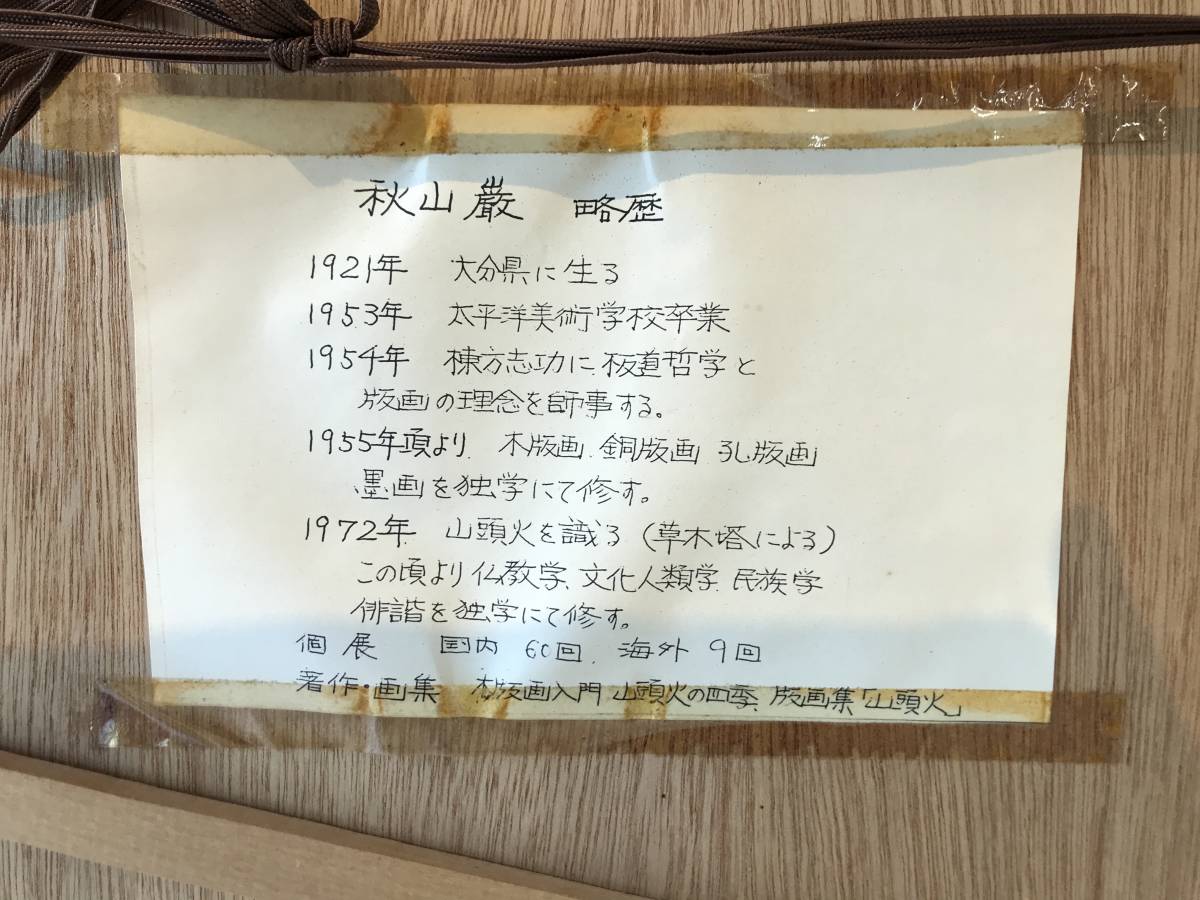 秋山巌 略歴
1921年 大分県に生る
1953年 太平洋美術学校卒業
1954年 棟方志功に板道哲学と
版画の理念を師事する。
1955年頃より 木版画 銅版画 孔版画
墨画を独学にて修す。
1972年 山頭火を識る(草木塔による)
この頃より仏教学、文化人類学 民族学
俳諧を独学にて修す。
個展 国内 60回、海外 9回
著作・画集 木版画入門 山頭火の四季、版画集「山頭火」